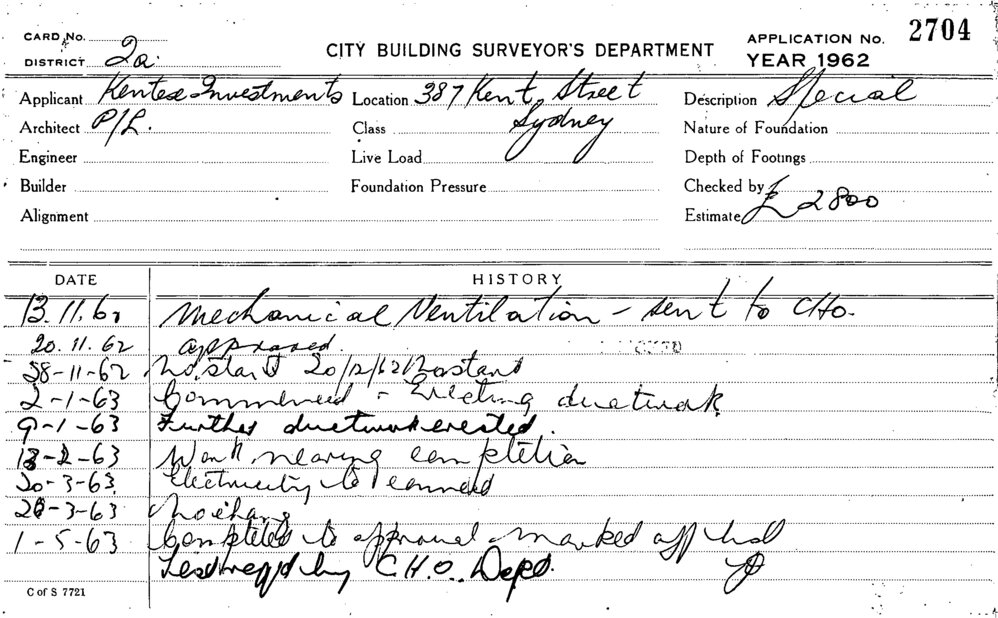 CARD No.
DISTRICT 2a.
CITY BUILDING SURVEYOR'S DEPARTMENT
APPLICATION No. 2704
YEAR 1962
Applicant Kentex Investments Location 387 Kent Street Description Special
Architect P/L. Class Sydney Nature of Foundation
Engineer Live Load Depth of Footings
Builder Foundation Pressure Checked by
Alignment Estimate £ 2800
DATE HISTORY
13.11.62 Mechanical Ventilation – sent to CHO.
20.11.62 approved.
28-11-62 No start 20/12/62 No start
2-1-63 Commenced - Erecting ductwork
9-1-63 Further ductwork erected.
13-2-63 Work nearing completion
20-3-63 Electricity to connect
20-3-63 No chang
1-5-63 Completed to approval marked off
Test by C.H.O. Dept.
C of S 7721